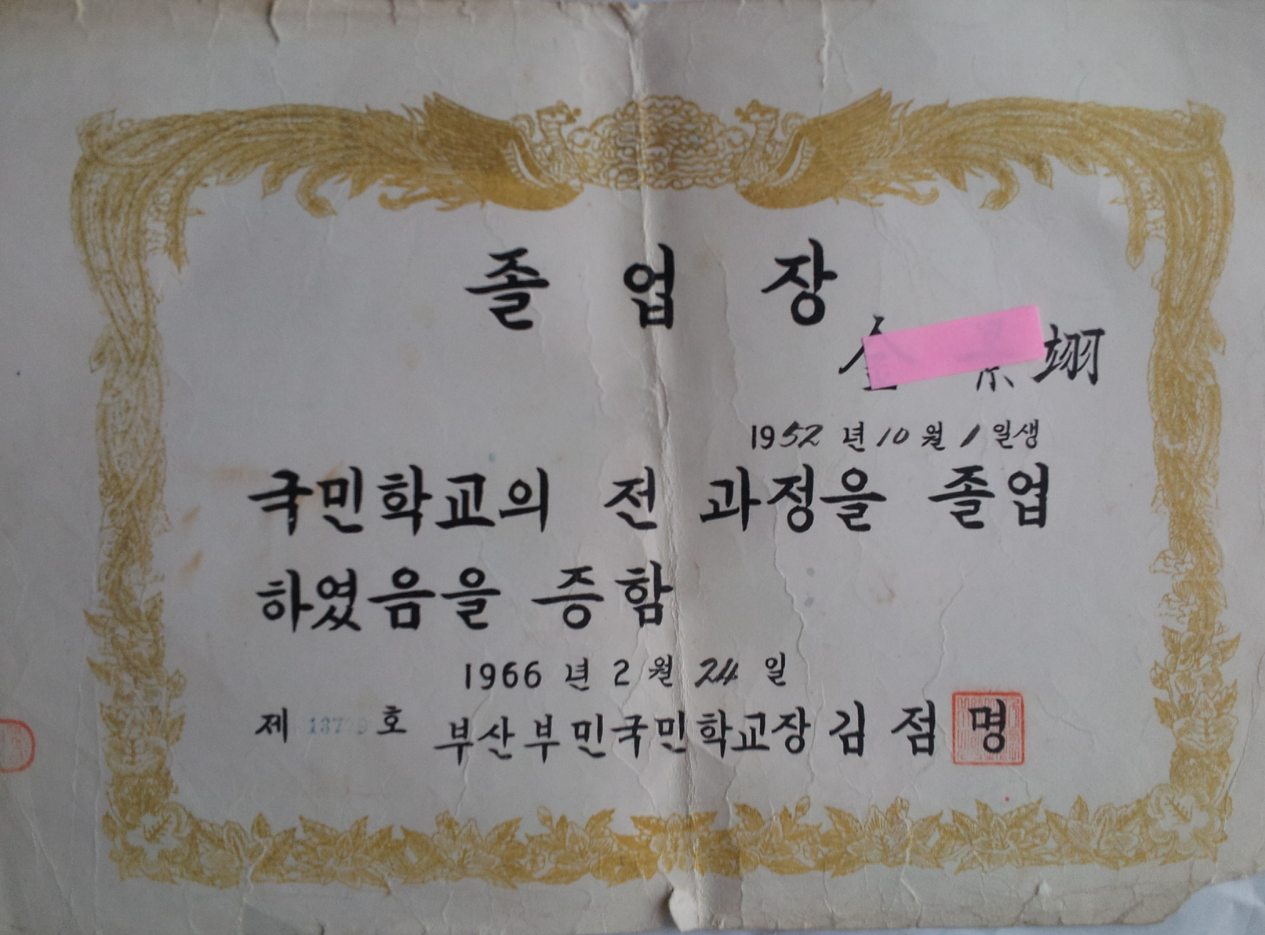 졸 업 장
翊
1952 년 10 월 1 일생
국민학교의 전 과정을 졸업
하였음을 증함
1966 년 2 월 24 일
제 호 부산부민국민학교장 김 점 명